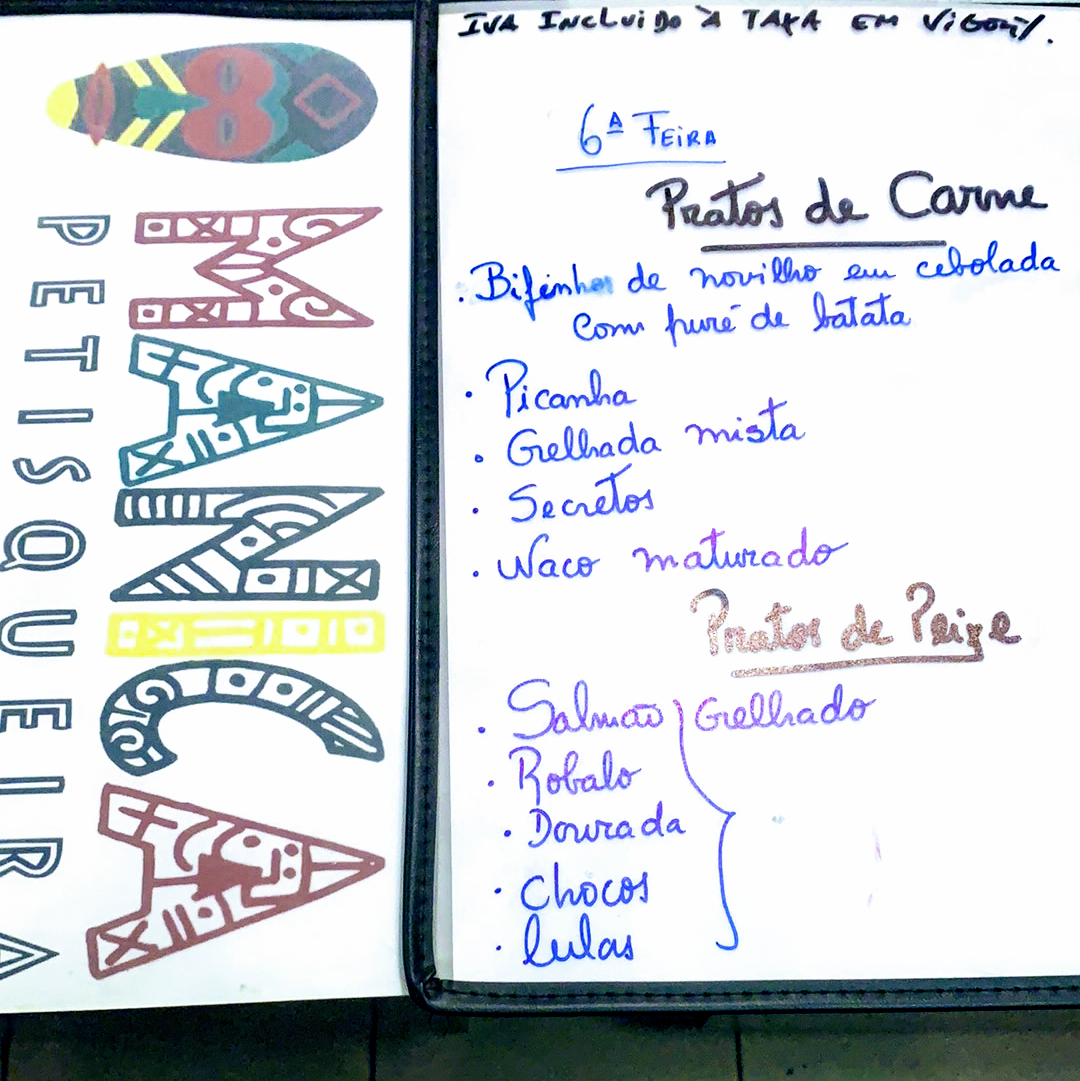 MANICA
PETISQUEIRA
IVA INCLUIDO À TAXA EM VIGOR.
6ª FEIRA
Pratos de Carne
. Bifinhos de novilho em cebolada
com puré de batata
· Picanha
. Grelhada mista
· Secretos
. Naco maturado
Pratos de Peixe
. Salmão } Grelhado
. Robalo
· Dourada
· Chocos
· lulas